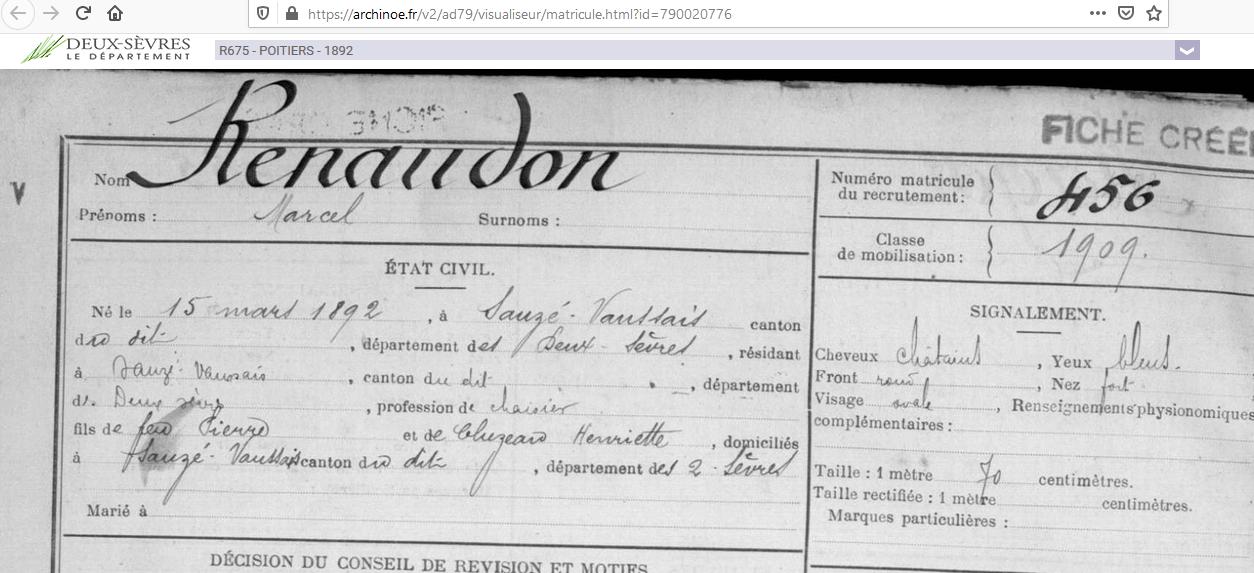 https://archinoe.fr/v2/ad79/visualiseur/matricule.html?id=790020776
DEUX-SÈVRES
LE DÉPARTEMENT
R675 - POITIERS - 1892
FICHE CRÉÉ
Nom Renaudon
Prénoms : Marcel Surnoms :
Numéro matricule
du recrutement : 456
Classe
de mobilisation : 1909.
ÉTAT CIVIL.
Né le 15 mars 1892, à Sauzé-Vaussais canton
du dit, département des Deux-Sèvres, résidant
à Sauzé-Vaussais, canton du dit, département
d. Deux Sèvres, profession de chaisier
fils de feu Pierre et de Cluzeau Henriette, domiciliés
à Sauzé-Vaussais canton du dit, département des 2-Sèvres
Marié à
DÉCISION DU CONSEIL DE REVISION ET MOTIFS
SIGNALEMENT.
Cheveux châtains, Yeux bleus.
Front rond, Nez fort
Visage ovale, Renseignements physionomiques
complémentaires :
Taille : 1 mètre 70 centimètres.
Taille rectifiée : 1 mètre centimètres.
Marques particulières :